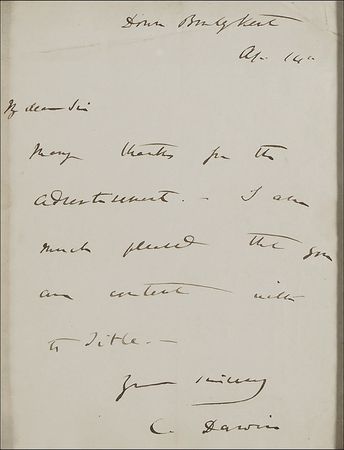 Down Bromley Kent
Ap. 14th
My dear Sir
Many thanks for the
advertisement. — I am
much pleased that you
are content with
to title. —
Yours sincerely
C. Darwin